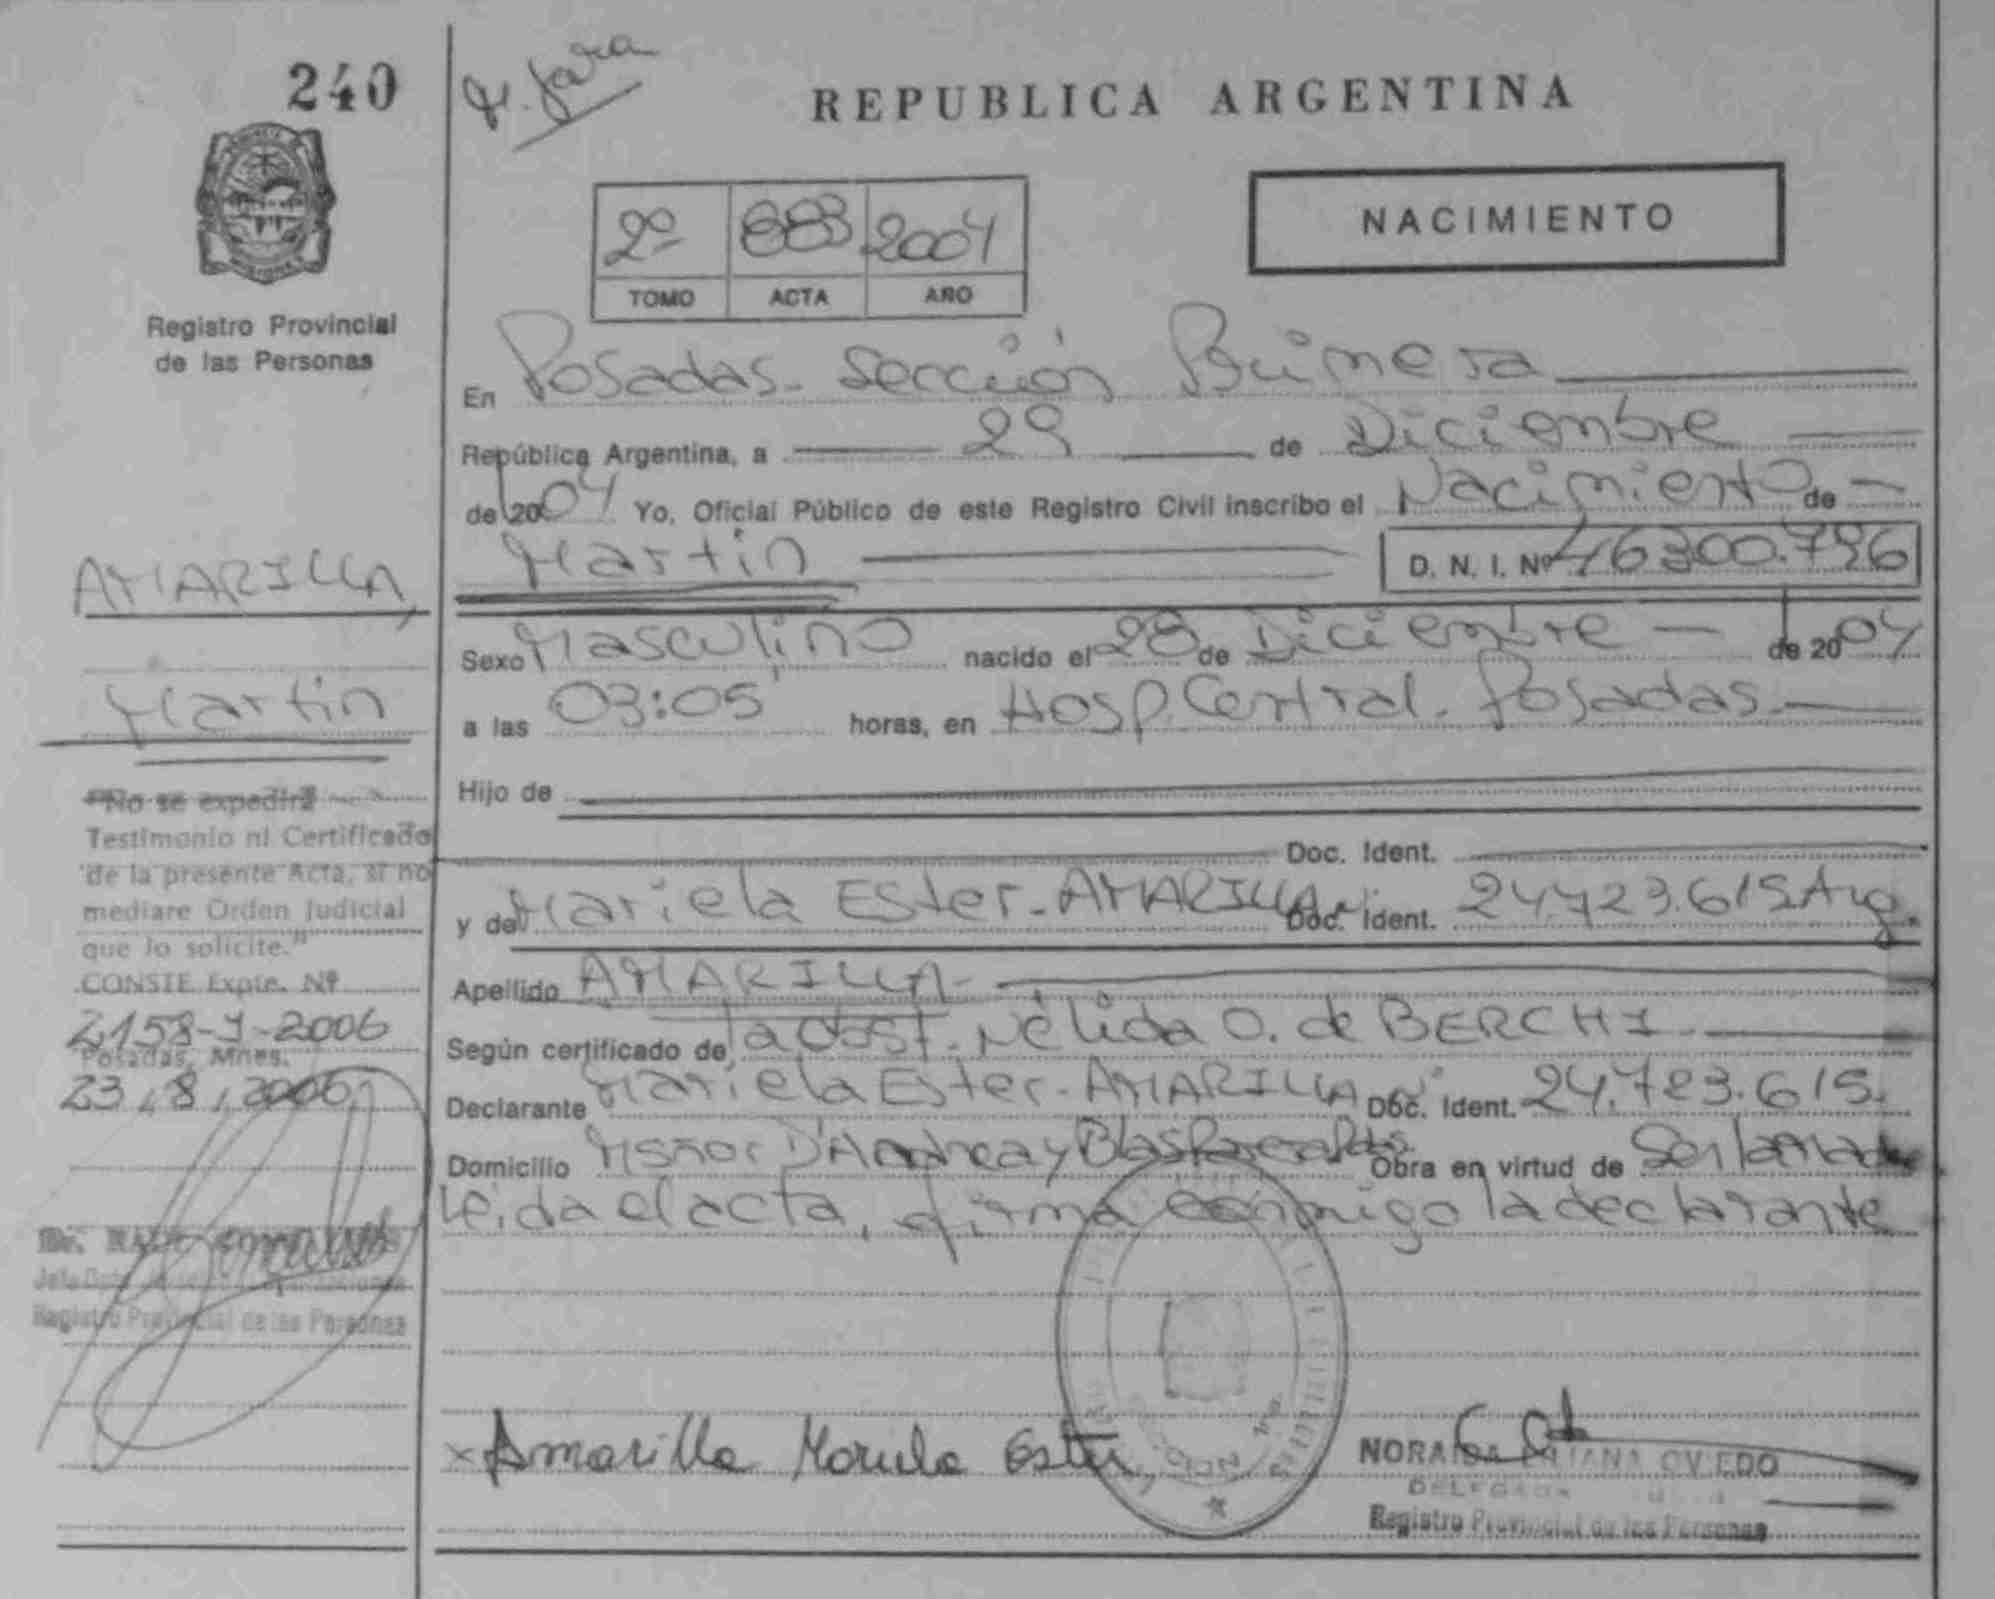 240
Registro Provincial
de las Personas
AMARILLA,
Martin
"No se expedirá
Testimonio ni Certificado
de la presente Acta, si no
mediare Orden Judicial
que lo solicite."
CONSTE Expte. Nº
2158-J-2006
Posadas, Mnes.
23, 8, 2006
Registro Provincial de las Personas
REPUBLICA ARGENTINA
2º 883 2004
TOMO ACTA AÑO
NACIMIENTO
En Posadas- Sección Primera
República Argentina, a 29 de Diciembre
de 2004 Yo, Oficial Público de este Registro Civil inscribo el Nacimiento de
Martin D. N. I. Nº 46300.796
Sexo Masculino nacido el 28 de Diciembre de 2004
a las 03:05 horas, en Hosp. Central. Posadas
Hijo de
Doc. Ident.
y de Mariela Ester- AMARILLA Doc. Ident. 24.723.615 Arg.
Apellido AMARILLA
Según certificado de la obst. Nélida O. de BERCHI
Declarante Mariela Ester- AMARILLA Doc. Ident. 24.723.615.
Domicilio Msñor D'Andrea y Blas Obra en virtud de Ser la madre
Leida el acta, firma conmigo la declarante
x Amarilla Mariela Ester
OVIEDO
Registro Provincial de las Personas